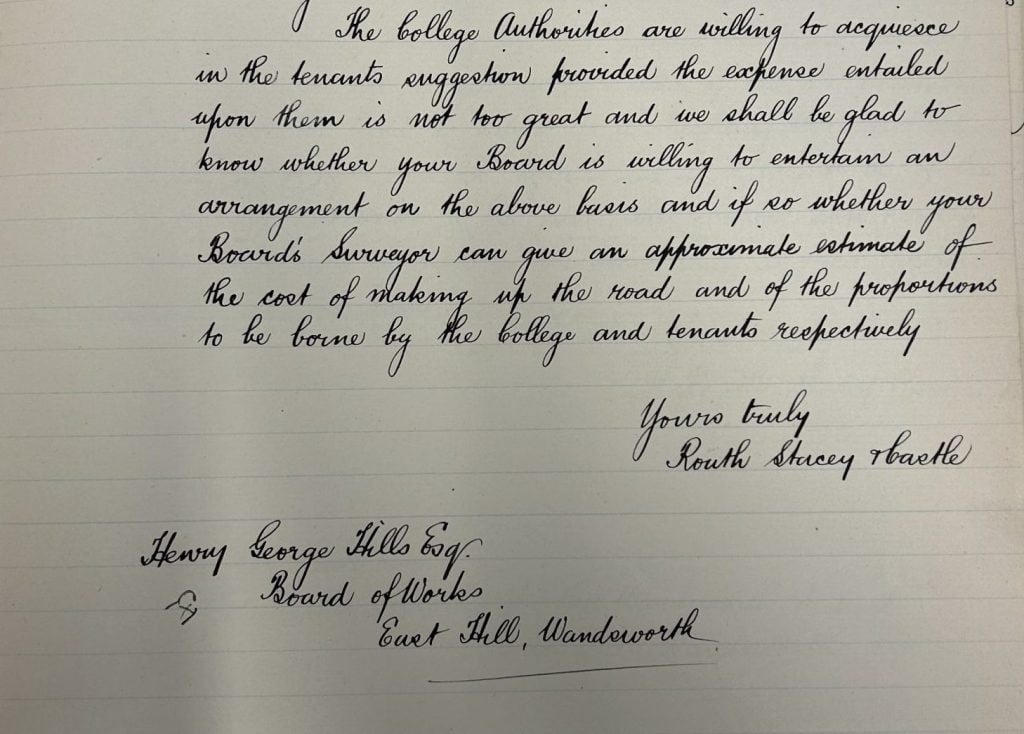 The College Authorities are willing to acquiesce
in the tenants suggestion provided the expense entailed
upon them is not too great and we shall be glad to
know whether your Board is willing to entertain an
arrangement on the above basis and if so whether your
Board's Surveyor can give an approximate estimate of
the cost of making up the road and of the proportions
to be borne by the College and tenants respectively
Yours truly
Routh Stacey & Castle
Henry George Hills Esq.
Board of Works
East Hill, Wandsworth